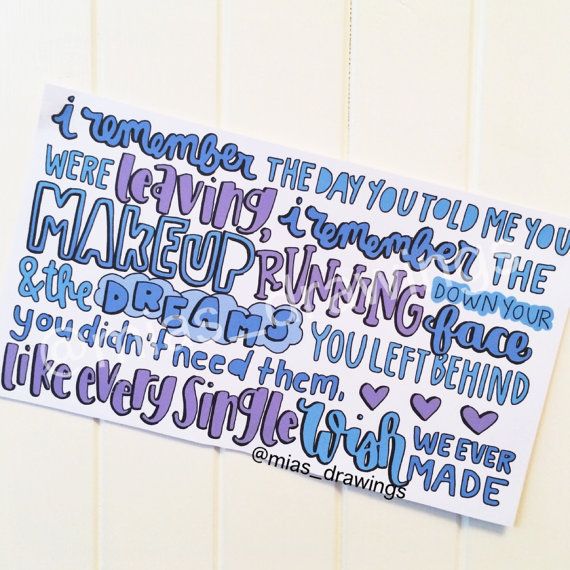 i remember THE DAY YOU TOLD ME YOU
WERE leaving, i remember THE
MAKEUP RUNNING DOWN YOUR
&the DREAMS face
YOU LEFT BEHIND
you didn't need them.
like every single wish WE EVER
MADE
@mias_drawings
@mias_drawings